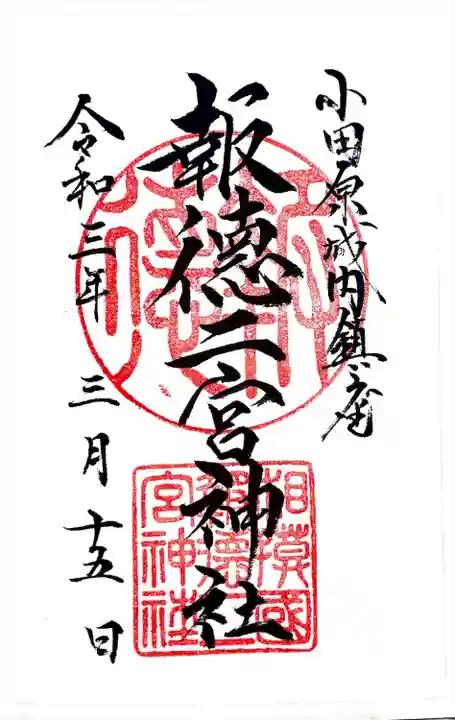 小田原城内鎮座
報徳二宮神社
令和三年 三月十五日
相模國
報徳二
宮神社